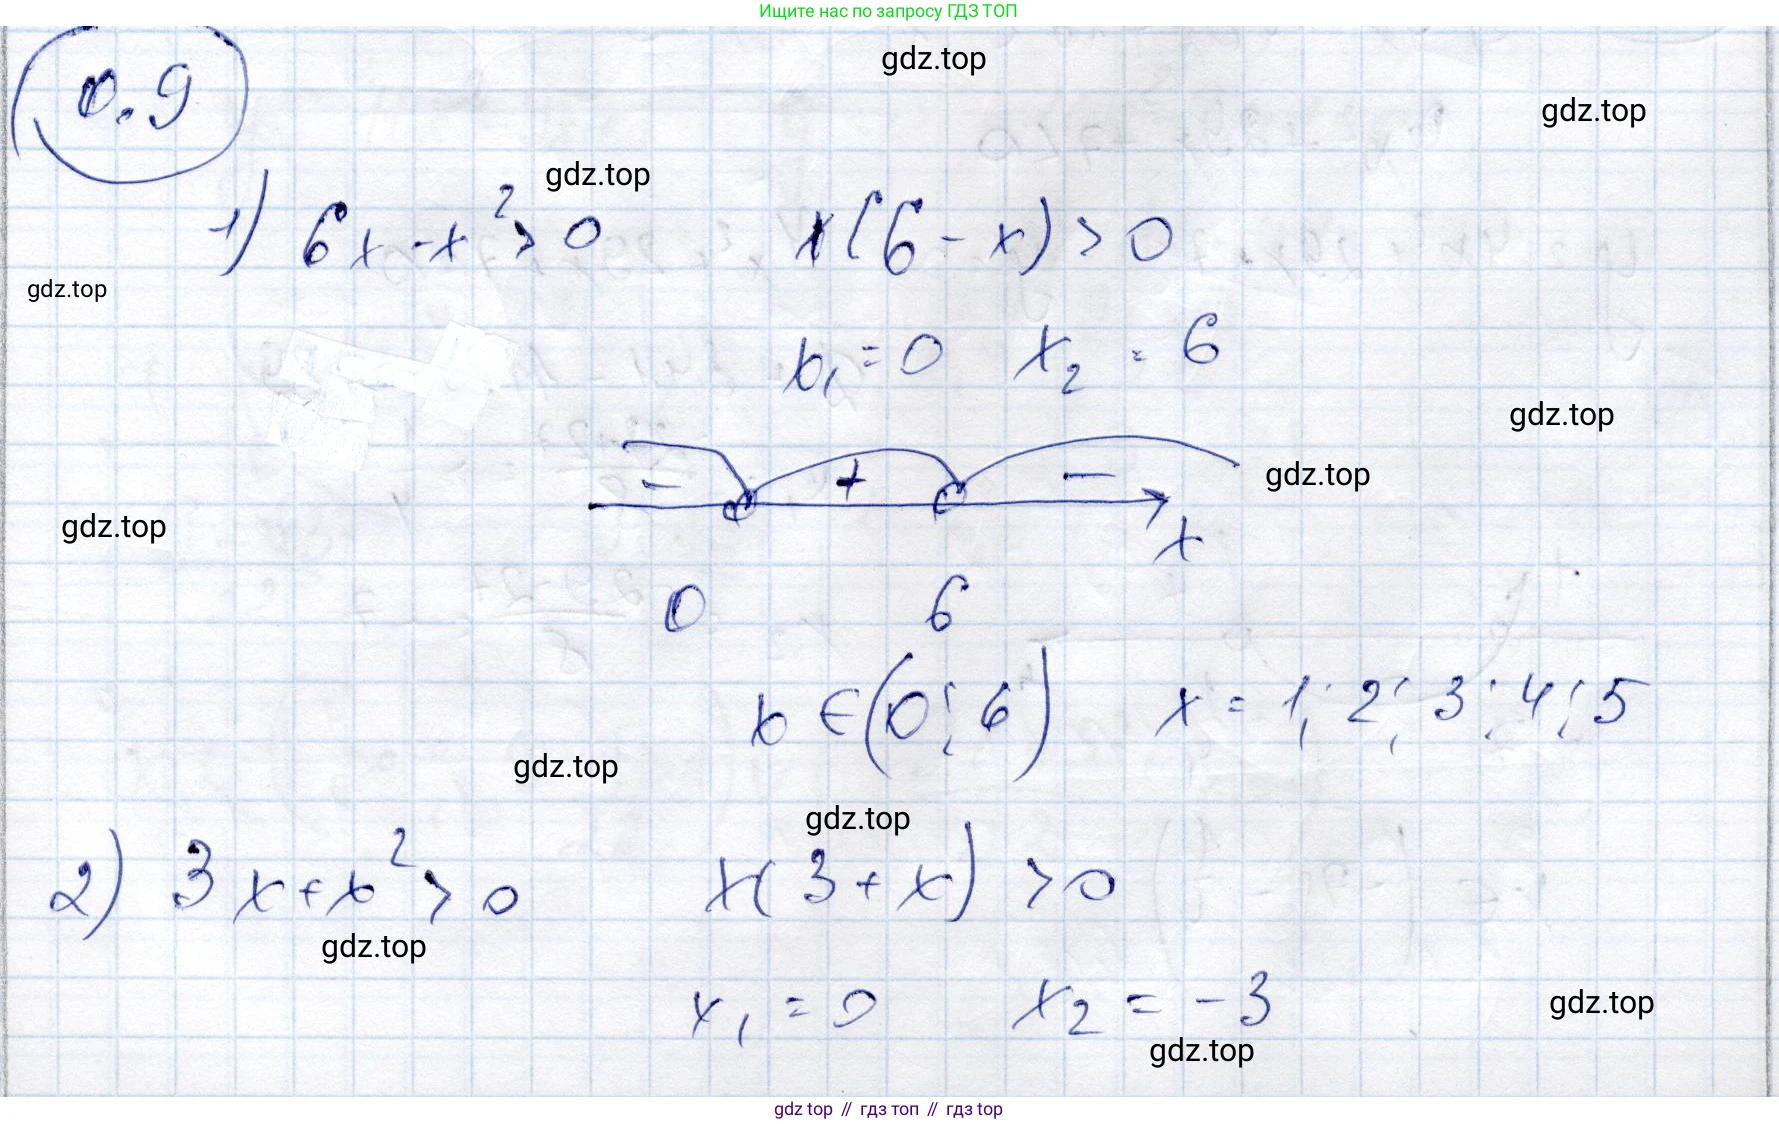 Ищите нас по запросу ГДЗ ТОП
gdz.top
0.9
gdz.top
gdz.top
1) 6x - x² > 0    x(6 - x) > 0
gdz.top
x₁ = 0    x₂ = 6
gdz.top
- + -
gdz.top
gdz.top
x
0    6
x ∈ (0; 6)    x = 1; 2; 3; 4; 5
gdz.top
gdz.top
2) 3x + x² > 0    x(3 + x) > 0
gdz.top
x₁ = 0    x₂ = -3
gdz.top
gdz.top
gdz top // гдз топ // гдз top